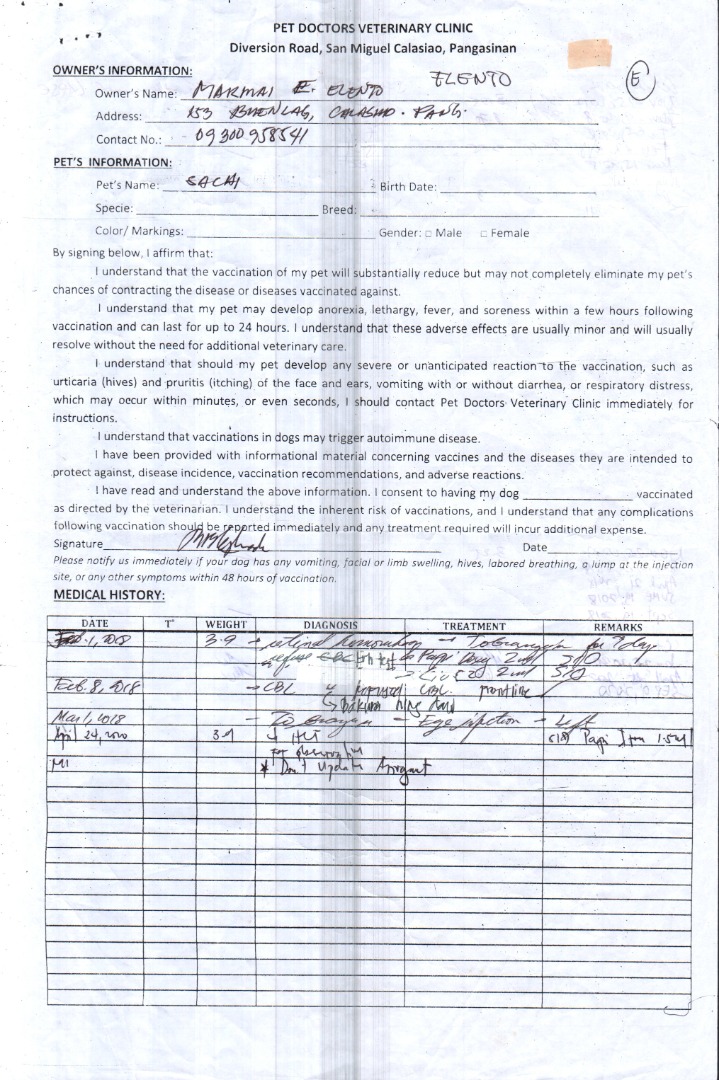 PET DOCTORS VETERINARY CLINIC
Diversion Road, San Miguel Calasiao, Pangasinan
OWNER'S INFORMATION:
ELENTO
E
Owner's Name: MARMAI E. ELENTO
Address: 153 BUENLAG, CALASIAO. PANG.
Contact No.: 09300958541
PET'S INFORMATION:
Pet's Name: SACHI Birth Date:
Specie: Breed:
Color/ Markings: Gender: □ Male □ Female
By signing below, I affirm that:
I understand that the vaccination of my pet will substantially reduce but may not completely eliminate my pet's
chances of contracting the disease or diseases vaccinated against.
I understand that my pet may develop anorexia, lethargy, fever, and soreness within a few hours following
vaccination and can last for up to 24 hours. I understand that these adverse effects are usually minor and will usually
resolve without the need for additional veterinary care.
I understand that should my pet develop any severe or unanticipated reaction to the vaccination, such as
urticaria (hives) and pruritis (itching) of the face and ears, vomiting with or without diarrhea, or respiratory distress,
which may occur within minutes, or even seconds, I should contact Pet Doctors Veterinary Clinic immediately for
instructions.
I understand that vaccinations in dogs may trigger autoimmune disease.
I have been provided with informational material concerning vaccines and the diseases they are intended to
protect against, disease incidence, vaccination recommendations, and adverse reactions.
I have read and understand the above information. I consent to having my dog vaccinated
as directed by the veterinarian. I understand the inherent risk of vaccinations, and I understand that any complications
following vaccination should be reported immediately and any treatment required will incur additional expense.
Signature Date
Please notify us immediately if your dog has any vomiting, facial or limb swelling, hives, labored breathing, a lump at the injection
site, or any other symptoms within 48 hours of vaccination.
MEDICAL HISTORY:
DATE T° WEIGHT DIAGNOSIS TREATMENT REMARKS
Feb. 1, 2018 3.9 for 7 days
CBC Papi 2ml
2ml
Feb. 8, 2018 CBC frontline
Mar 1, 2018 Eye Left
April 24, 2020 3.9 Papi Iron 1.5ml
For observation
* Don't Update